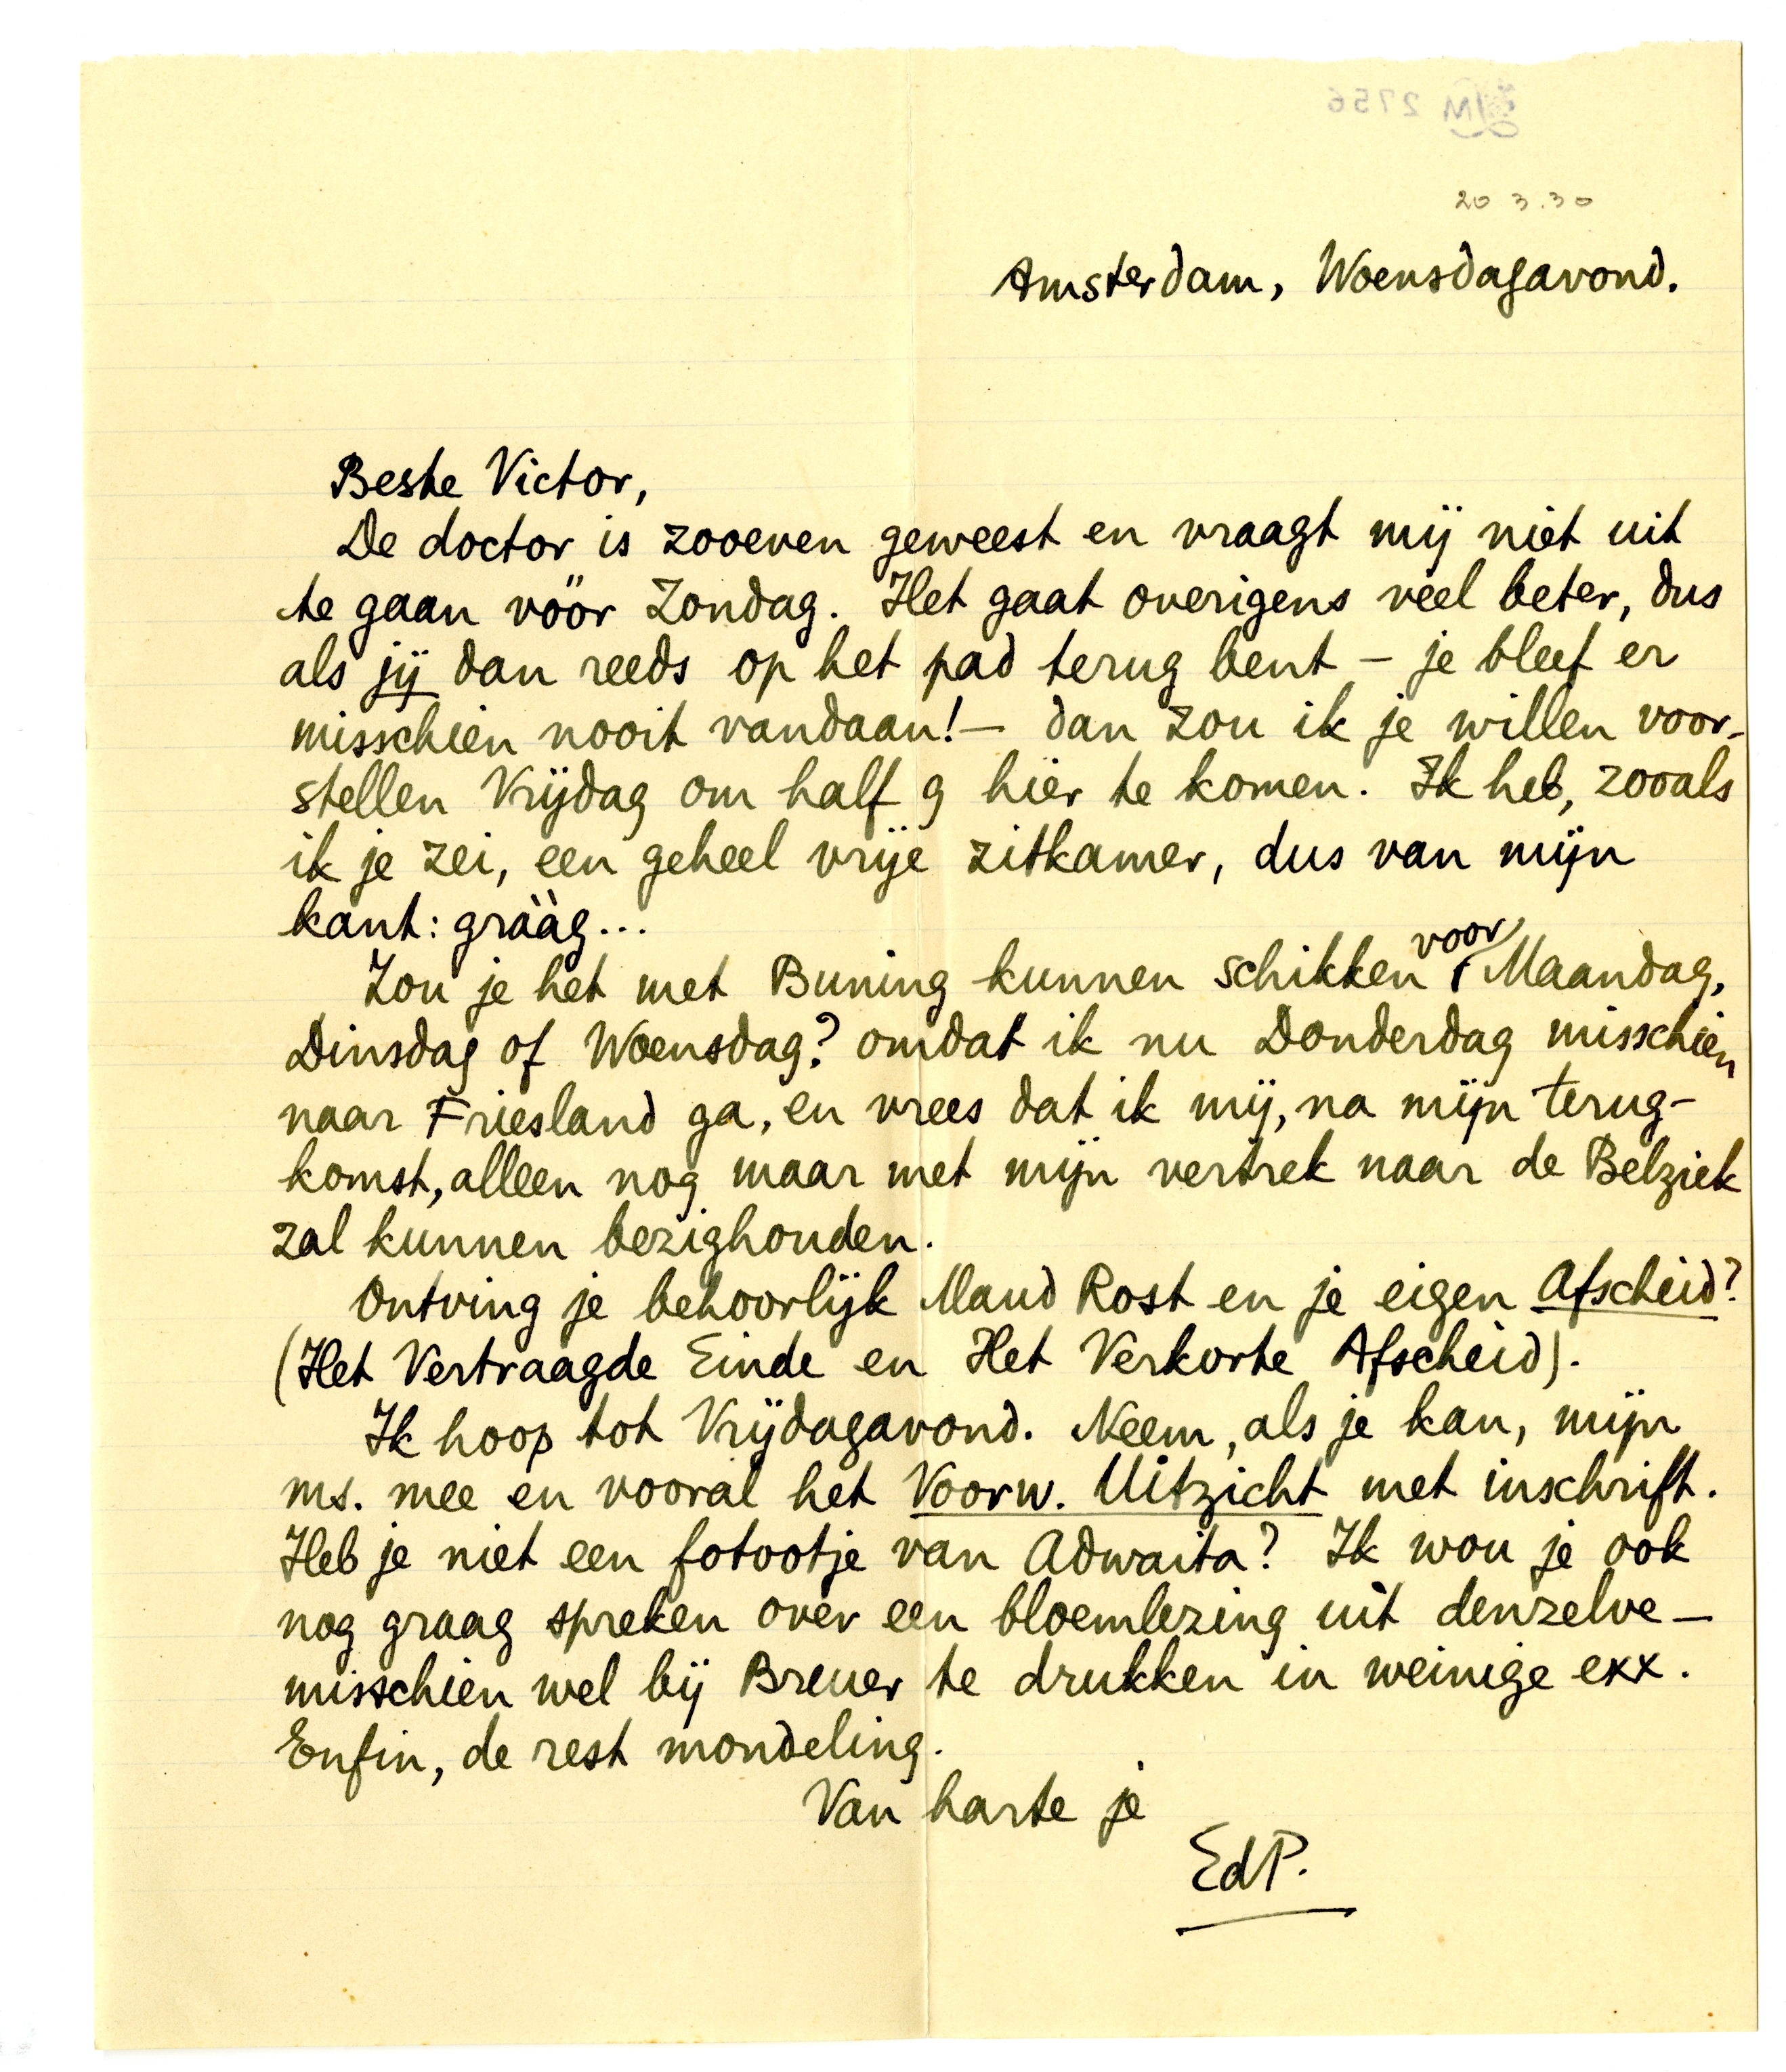 LM 2756
20 3.30
Amsterdam, Woensdagavond.
Beste Victor,
De doctor is zooeven geweest en vraagt mij niet uit
te gaan vóór Zondag. Het gaat overigens veel beter, dus
als jij dan reeds op het pad terug bent – je bleef er
misschien nooit vandaan! – dan zou ik je willen voor-
stellen Vrijdag om half 9 hier te komen. Ik heb, zooals
ik je zei, een geheel vrije zitkamer, dus van mijn
kant: gràag...
Zou je het met Buning kunnen schikken voor Maandag,
Dinsdag of Woensdag? omdat ik nu Donderdag misschien
naar Friesland ga, en vrees dat ik mij, na mijn terug-
komst, alleen nog maar met mijn vertrek naar de Belziek
zal kunnen bezighouden.
Ontving je behoorlijk Maud Rost en je eigen Afscheid?
(Het Vertraagde Einde en Het Verkorte Afscheid).
Ik hoop tot Vrijdagavond. Neem, als je kan, mijn
ms. mee en vooral het Voorw. Uitzicht met inschrift.
Heb je niet een fotootje van Adwaita? Ik wou je ook
nog graag spreken over een bloemlezing uit denzelve –
misschien wel bij Breuer te drukken in weinige exx.
Enfin, de rest mondeling.
Van harte je
EdP.